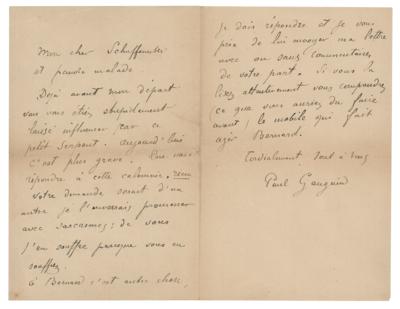 Mon cher Schuffenecker
et pauvre malade
Déjà avant mon départ
vous vous étiez stupidement
laissé influencer par ce
petit Serpent. aujourd'hui
c'est plus grave. Que vous
répondre à cette calomnie,
votre demande serait d'un
autre je l'enverrais promener
avec sarcasmes; de vous
j'en souffre parceque vous en
souffrez.
à Bernard c'est autre chose,
je dois répondre et je vous
prie de lui envoyer ma lettre
avec ou sans commentaires
de votre part. Si vous la
lisez attentivement vous comprendrez
ce que vous auriez dû faire
avant; le mobile qui fait
agir Bernard.
Cordialement tout à vous
Paul Gauguin